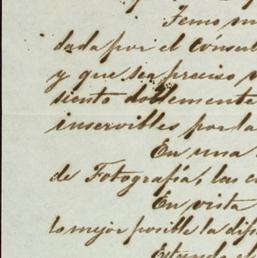 Temo
dada por el Cónsul
y que sea preciso
siento doblemente
inservibles por la
En una
de Fotografía, las
En vista
lo mejor posible la
Estando